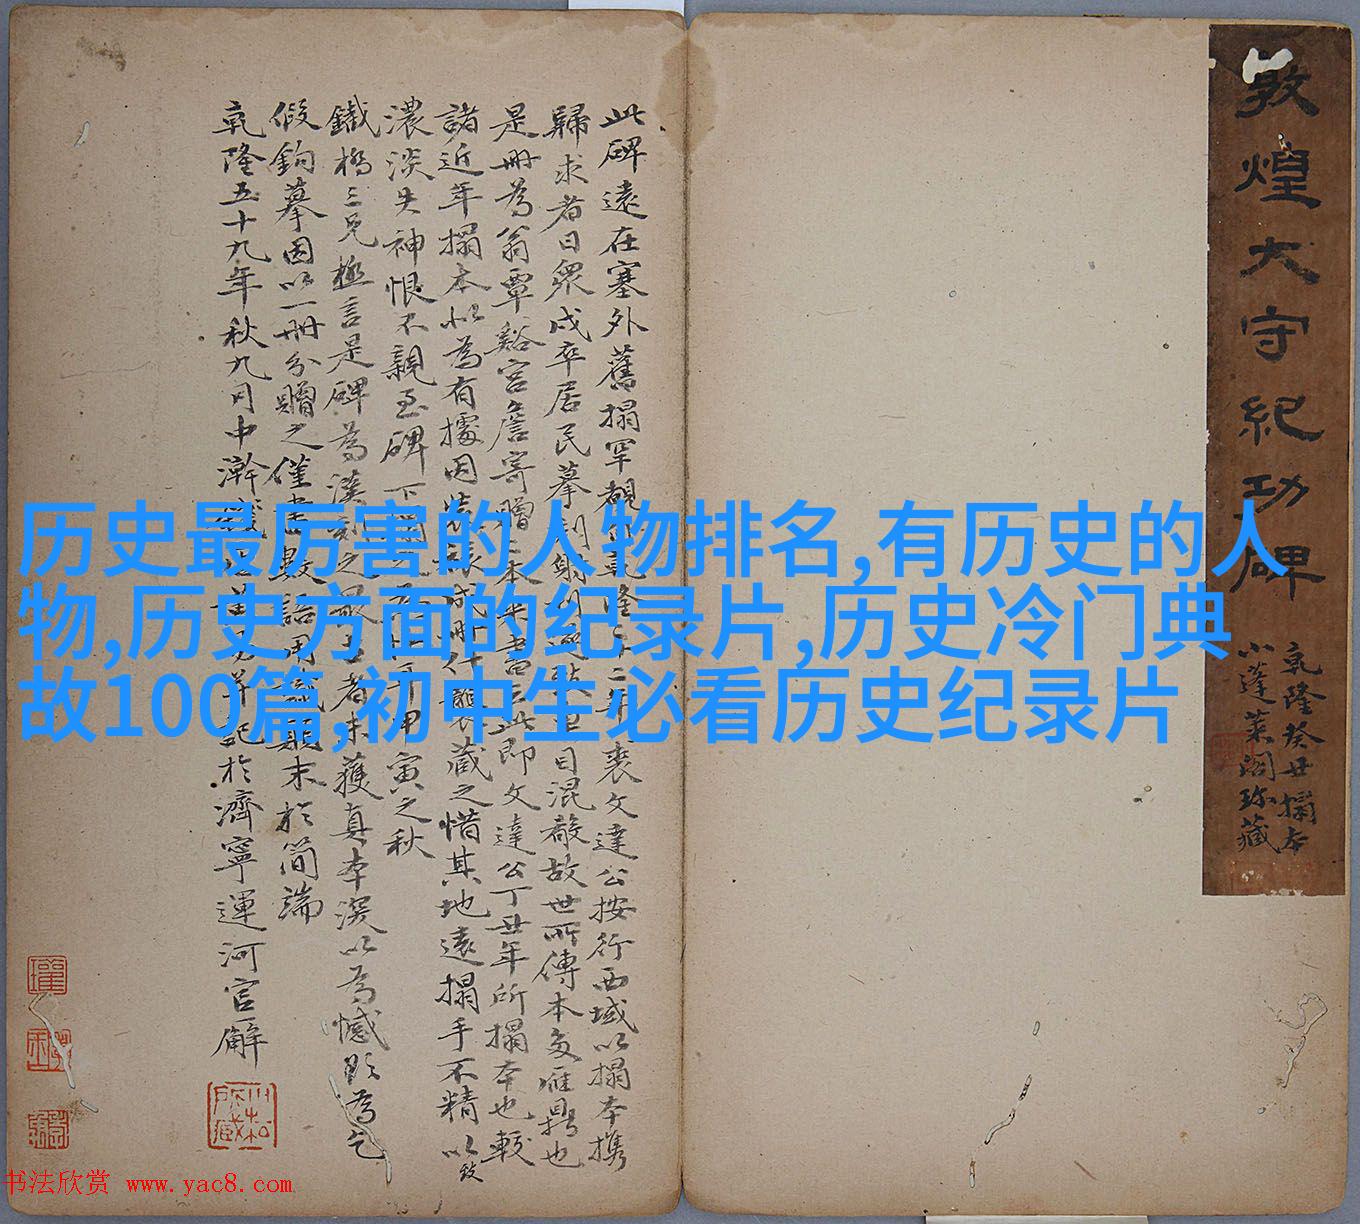 敦煌大守紀功碑
乾隆癸丑搨本
小蓬萊閣珎藏
此碑遠在塞外舊搨罕覯乾隆二年裘文達公按行西域以搨本携
歸求者日衆戍卒居民摹刻目混殽故世所傳本多雁鼎也
是冊為翁覃谿宮詹寄贈本書云此即文達公丁丑年所搨本也較
諸近年搨本似為有據因裝成冊什襲藏之惜其地遠搨手不精以致
濃淡失神恨不親至碑下甲寅之秋
鐵橋三兄極言是碑為漢刻之者未獲真本深以為憾為
假鈎摹因以一冊分贈之僅書數語用識顛末於簡端
乾隆五十九年秋九月中澣記於濟寧運河官廨
历史最厉害的人物排名,有历史的人
物,历史方面的纪录片,历史冷门典
故100篇,初中生必看历史纪录片
书法欣赏 www.yac8.com